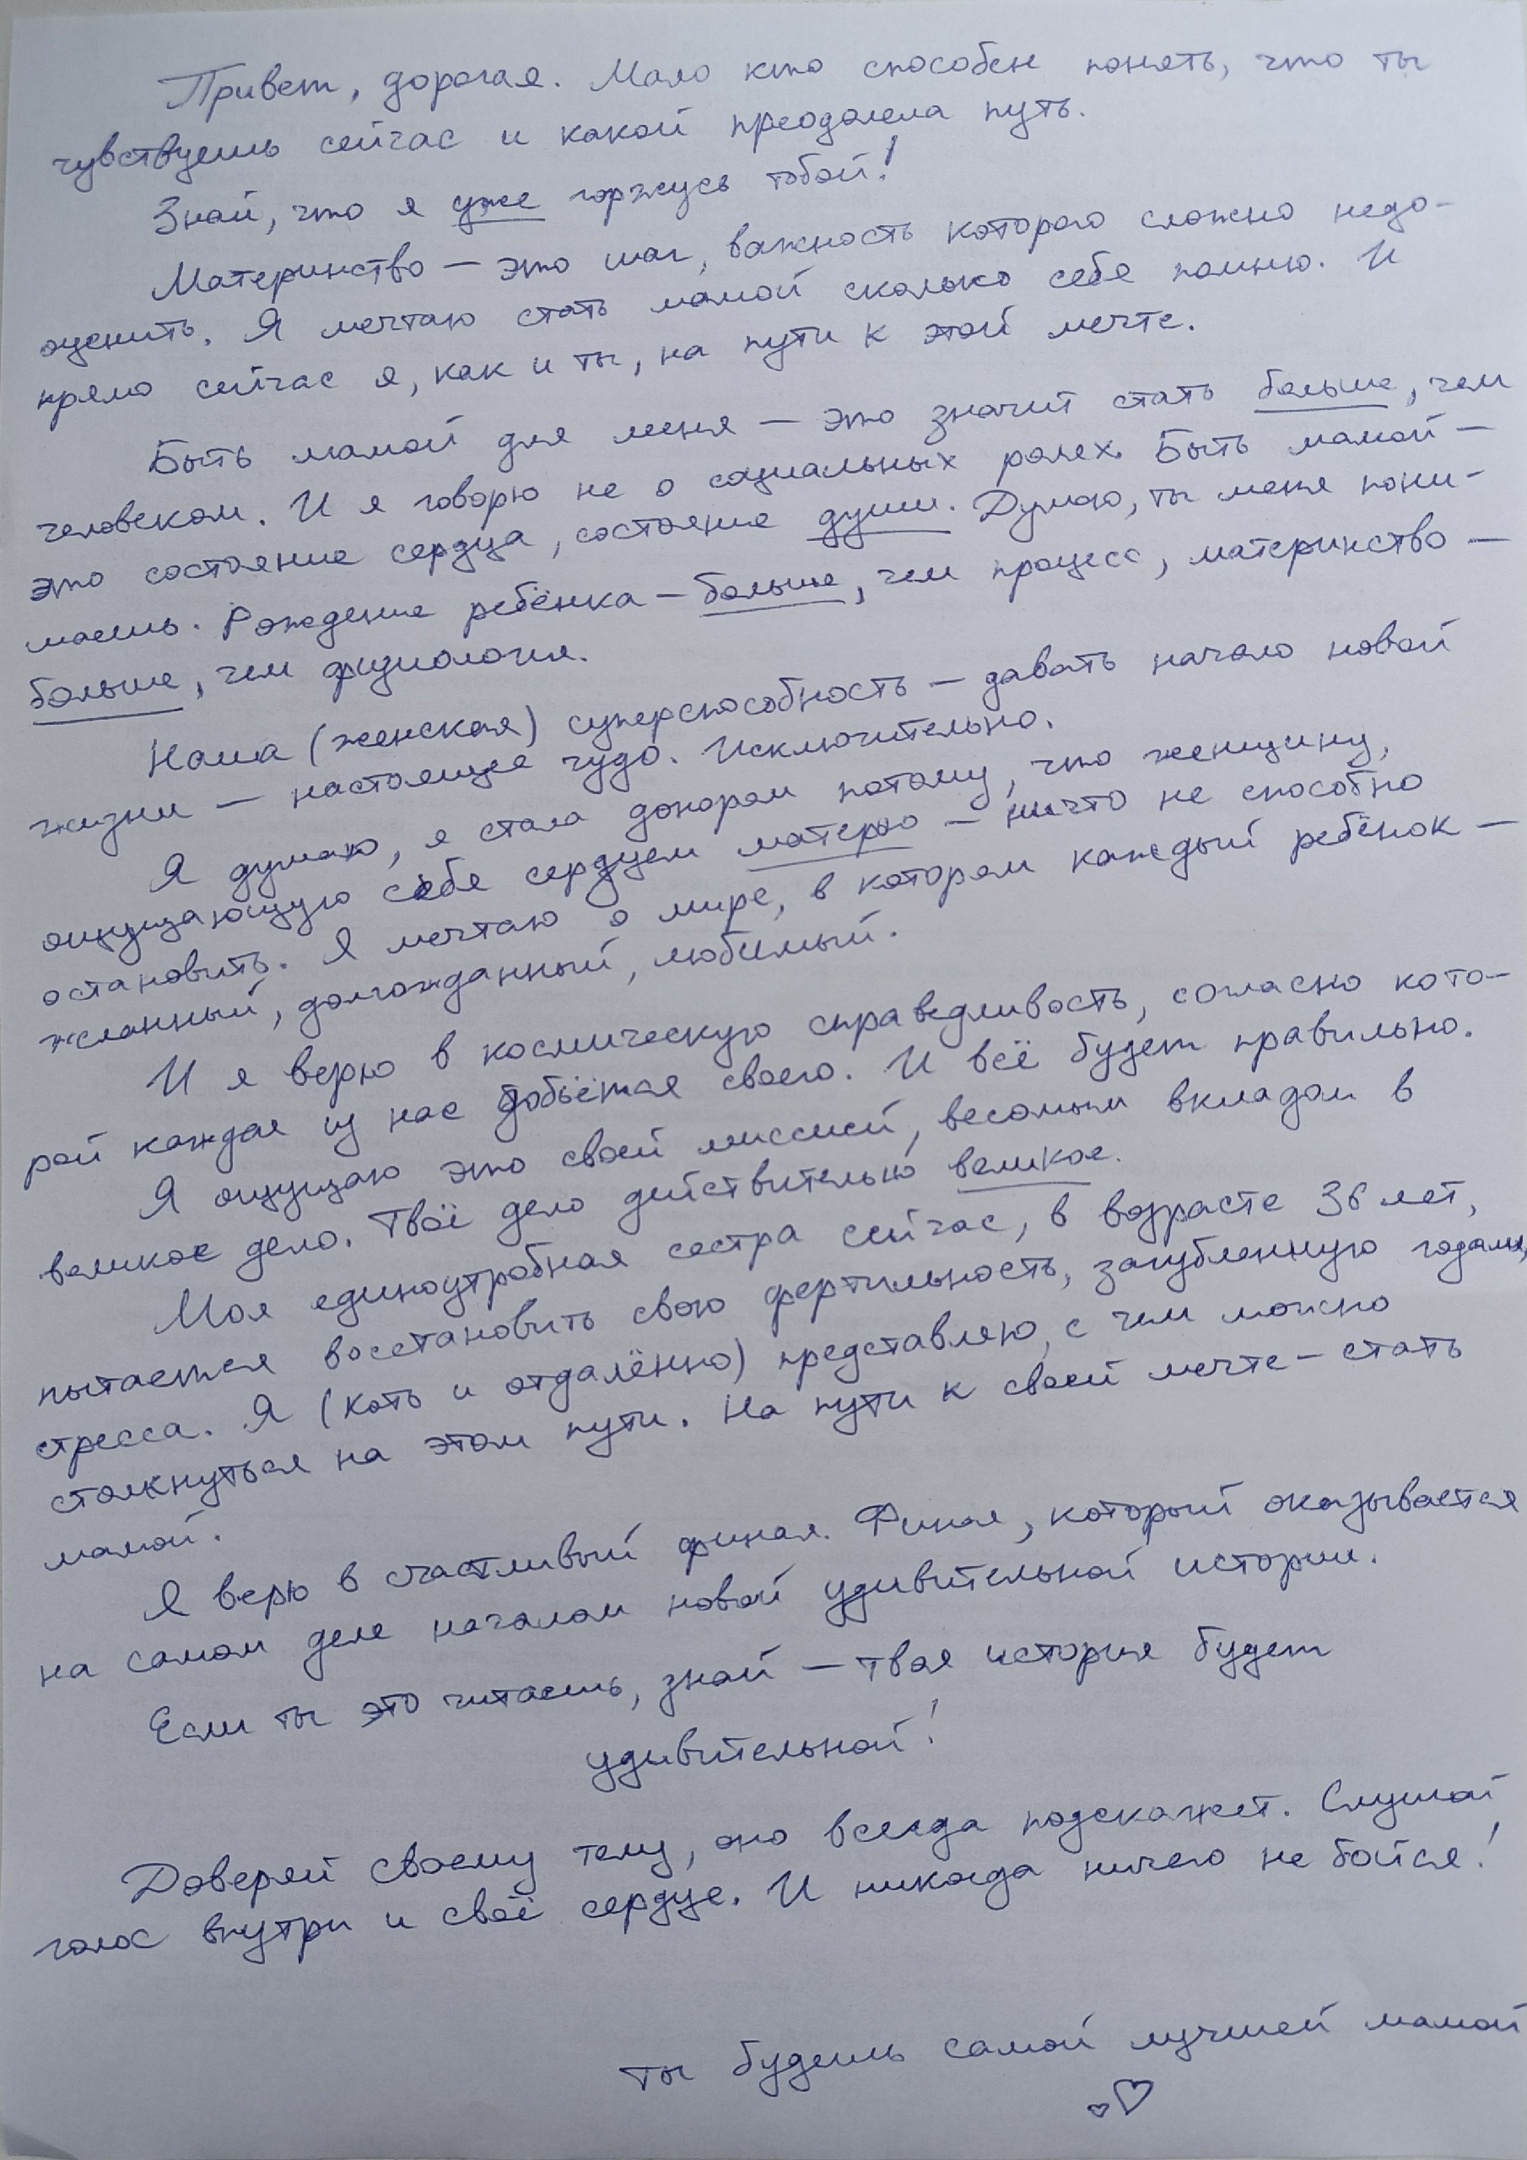 Привет, дорогая. Мало кто способен понять, что ты
чувствуешь сейчас и какой преодолела путь.
Знай, что я уже горжусь тобой!
Материнство — это шаг, важность которого сложно недо-
оценить. Я мечтаю стать мамой сколько себя помню. И
прямо сейчас я, как и ты, на пути к этой мечте.
Быть мамой для меня — это значит стать больше, чем
человеком. И я говорю не о социальных ролях. Быть мамой —
это состояние сердца, состояние души. Думаю, ты меня пони-
маешь. Рождение ребёнка — больше, чем процесс, материнство —
больше, чем физиология.
Наша (женская) суперспособность — давать начало новой
жизни — настоящее чудо. Исключительно.
Я думаю, я стала донором потому, что женщину,
ощущающую себя сердцем матерью — ничто не способно
остановить. Я мечтаю о мире, в котором каждый ребёнок —
желанный, долгожданный, любимый.
И я верю в космическую справедливость, согласно кото-
рой каждая из нас добьётся своего. И всё будет правильно.
Я ощущаю это своей миссией, весомым вкладом в
великое дело. Твоё дело действительно великое.
Моя единоутробная сестра сейчас, в возрасте 36 лет,
пытается восстановить свою фертильность, загубленную годами
стресса. Я (хоть и отдалённо) представляю, с чем можно
столкнуться на этом пути. На пути к своей мечте — стать
мамой.
Я верю в счастливый финал. Финал, который оказывается
на самом деле началом новой удивительной истории.
Если ты это читаешь, знай — твоя история будет
удивительной!
Доверяй своему телу, оно всегда подскажет. Слушай
голос внутри и своё сердце. И никогда ничего не бойся!
Ты будешь самой лучшей мамой